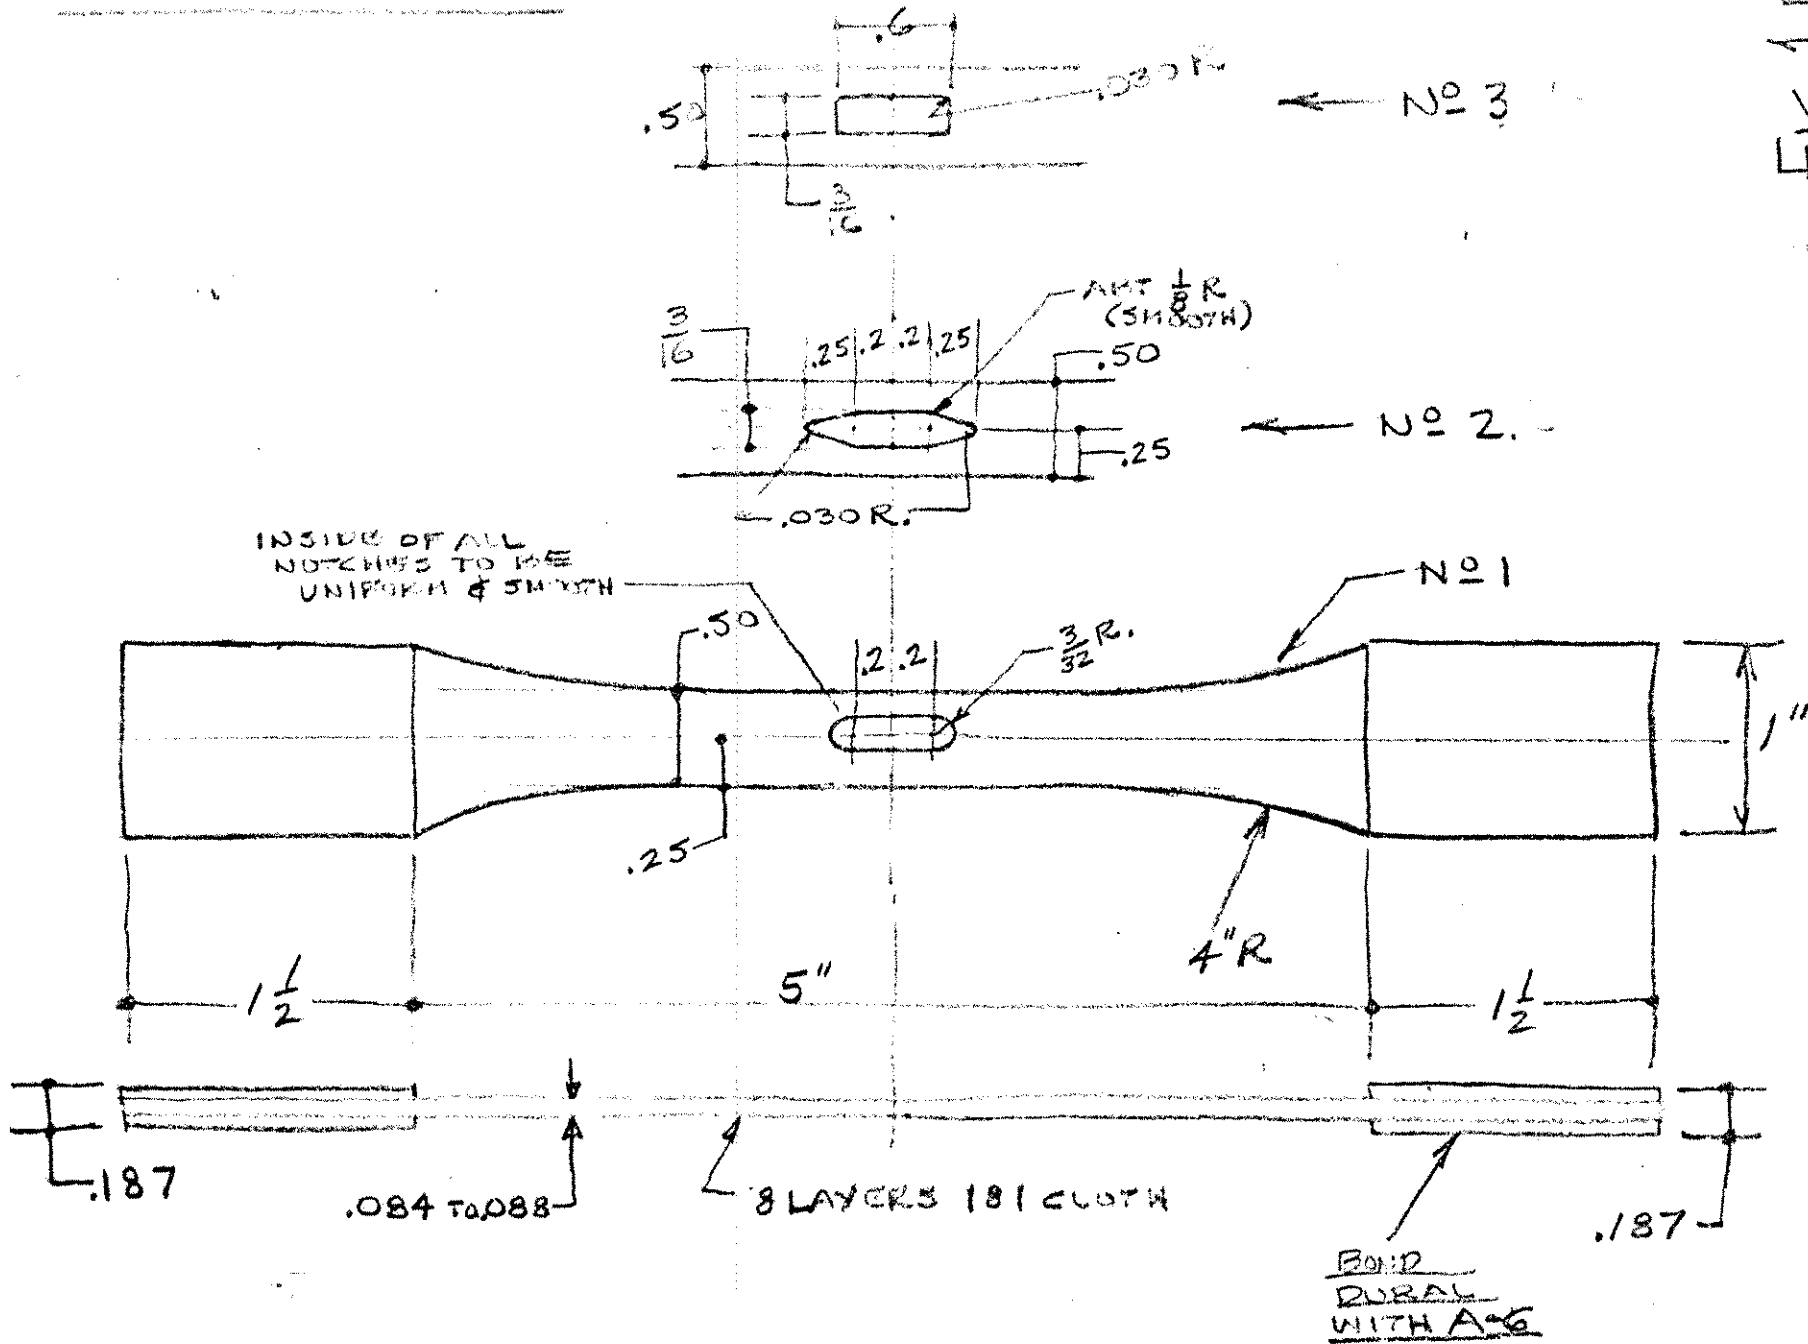 .6
.030 R
.50
Nº 3
3/16
AHT 1/8 R
(SMOOTH)
3/16
.25 .2 .2 .25
.50
Nº 2.
.25
.030 R.
INSIDE OF ALL
NOTCHES TO BE
UNIFORM & SMOOTH
Nº 1
.50
.2 .2
3/32 R.
1"
.25
4"R
1 1/2
5"
1 1/2
.187
.084 TO .088
8 LAYERS 181 CLOTH
.187
BOND
DURAL
WITH A-6